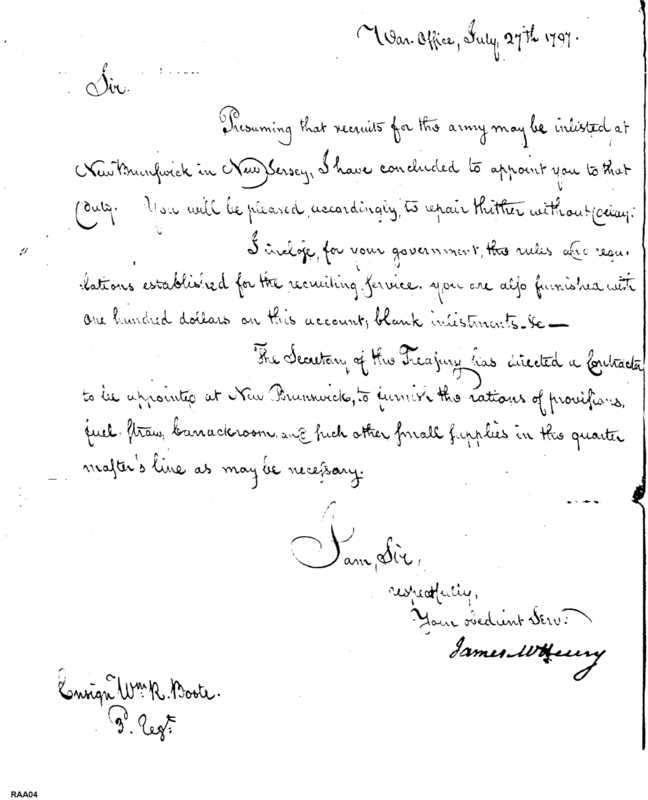 War Office, July, 27th 1797.
Sir.
Presuming that recruits for the army may be inlisted at
New Brunswick in New Jersey, I have concluded to appoint you to that
duty. You will be pleased, accordingly, to repair thither without delay.
I inclose, for your government, the rules and regu-
lations established for the recruiting service. you are also furnished with
one hundred dollars on this account; blank inlistments &c —
The Secretary of the Treasury has directed a Contractor
to be appointed at New Brunswick, to furnish the rations of provisions,
fuel, straw, barrackroom, and such other small supplies in the quarter
master's line as may be necessary.
I am, Sir,
respectfully,
Your obedient Serv:
James McHenry
Ensign Wm. R. Boote.
3d. Regt.
RAA04